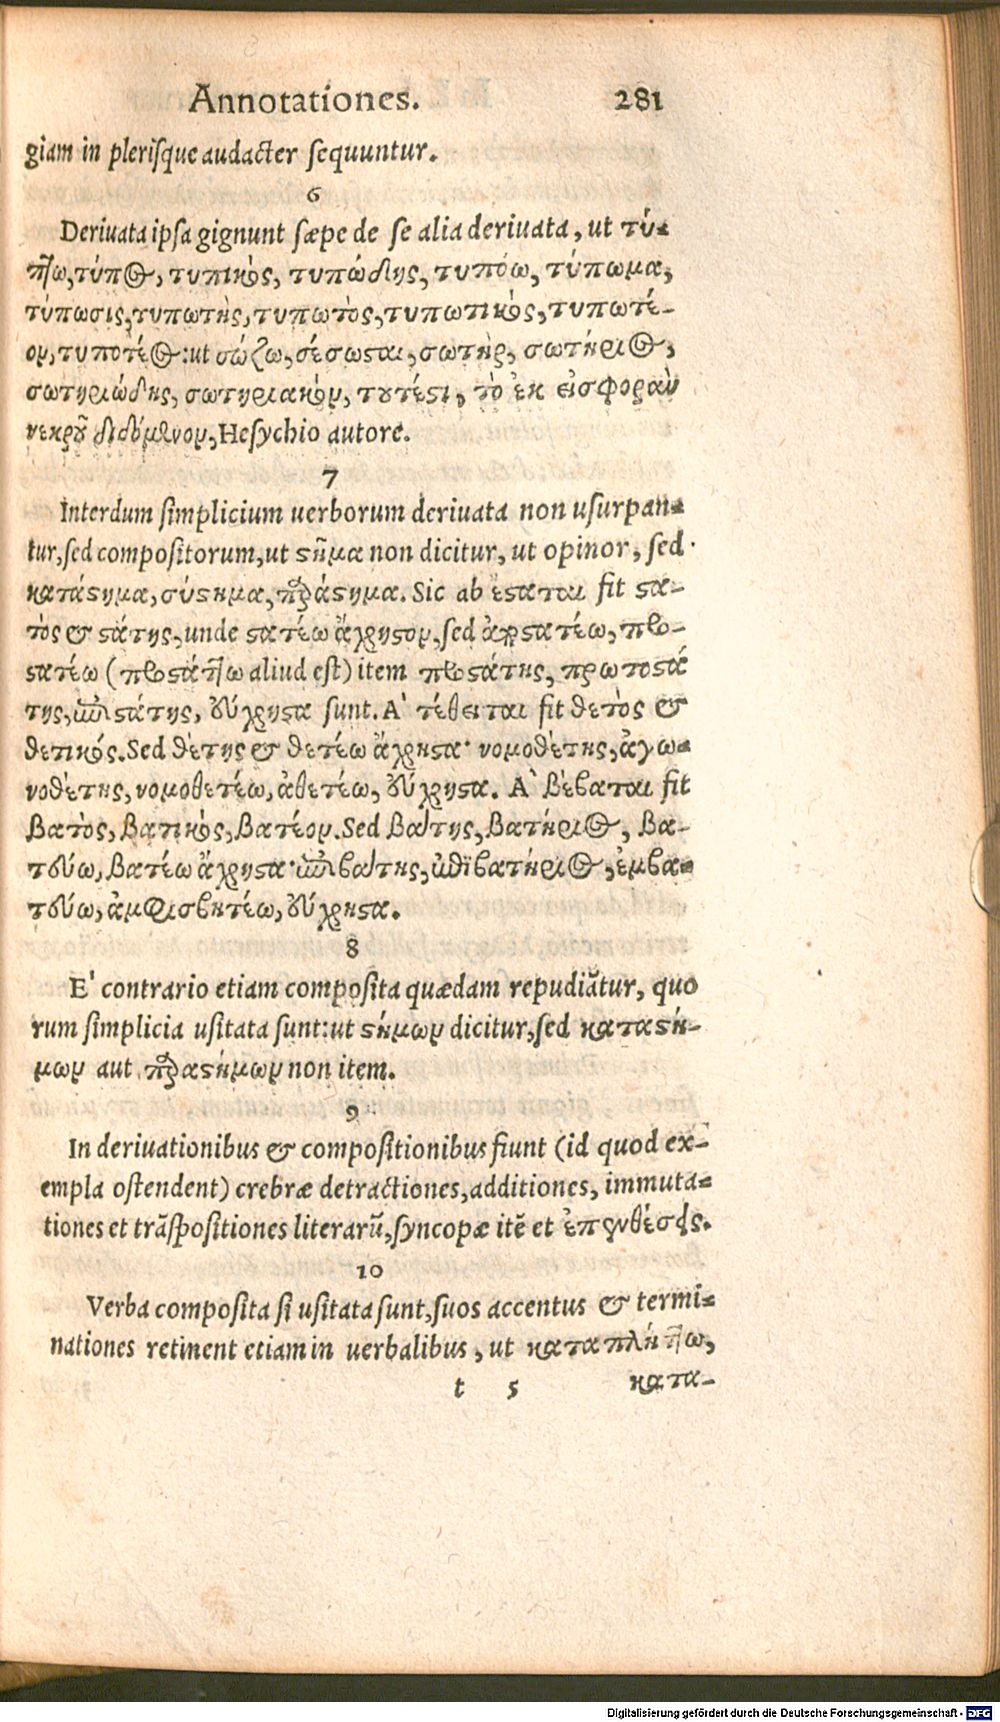 Annotationes. 281
giam in plerisque audacter sequuntur.
6
Deriuata ipsa gignunt sæpe de se alia deriuata, ut τύ-
πτω, τύπος, τυπικὸς, τυπώδης, τυπόω, τύπωμα,
τύπωσις, τυπωτὴς, τυπωτὸς, τυπωτικὸς, τυπωτέ-
ον, τυποτέος: ut σώζω, σέσωσαι, σωτὴρ, σωτήριος,
σωτηριώδης, σωτηριακὸν, τουτέστι, τὸ ἐκ εἰσφορᾶν
νεκροῦ διδόμενον, Hesychio autore.
7
Interdum simplicium uerborum deriuata non usurpan-
tur, sed compositorum, ut στῆμα non dicitur, ut opinor, sed
κατάστημα, σύστημα, παράστημα. Sic ab ἕσταται fit στα-
τὸς & στάτης, unde στατέω ἄχρηστον, sed ἀποστατέω, προ-
στατέω (προστάττω aliud est) item προστάτης, πρωτοστά
της, ἐπιστάτης, εὔχρηστα sunt. A' τέθειται fit θετὸς &
θετικός. Sed θέτης & θετέω ἄχρηστα· νομοθέτης, ἀγω-
νοθέτης, νομοθετέω, ἀθετέω, εὔχρηστα. A' βέβαται fit
βατὸς, βατικὸς, βατέον. Sed βάτης, βατήριος, βα-
τεύω, βατέω ἄχρηστα· ἐπιβάτης, ἐπιβατήριος, ἐμβα-
τεύω, ἀμφισβητέω, εὔχρηστα.
8
E' contrario etiam composita quædam repudiātur, quo
rum simplicia usitata sunt: ut στήμων dicitur, sed καταστή-
μων aut παραστήμων non item.
9
In deriuationibus & compositionibus fiunt (id quod ex-
empla ostendent) crebræ detractiones, additiones, immuta-
tiones et trāspositiones literarū, syncopæ itē et ἐπενθέσεις.
10
Verba composita si usitata sunt, suos accentus & termi-
nationes retinent etiam in uerbalibus, ut καταπλήττω,
t 5 κατα-
Digitalisierung gefördert durch die Deutsche Forschungsgemeinschaft - DFG